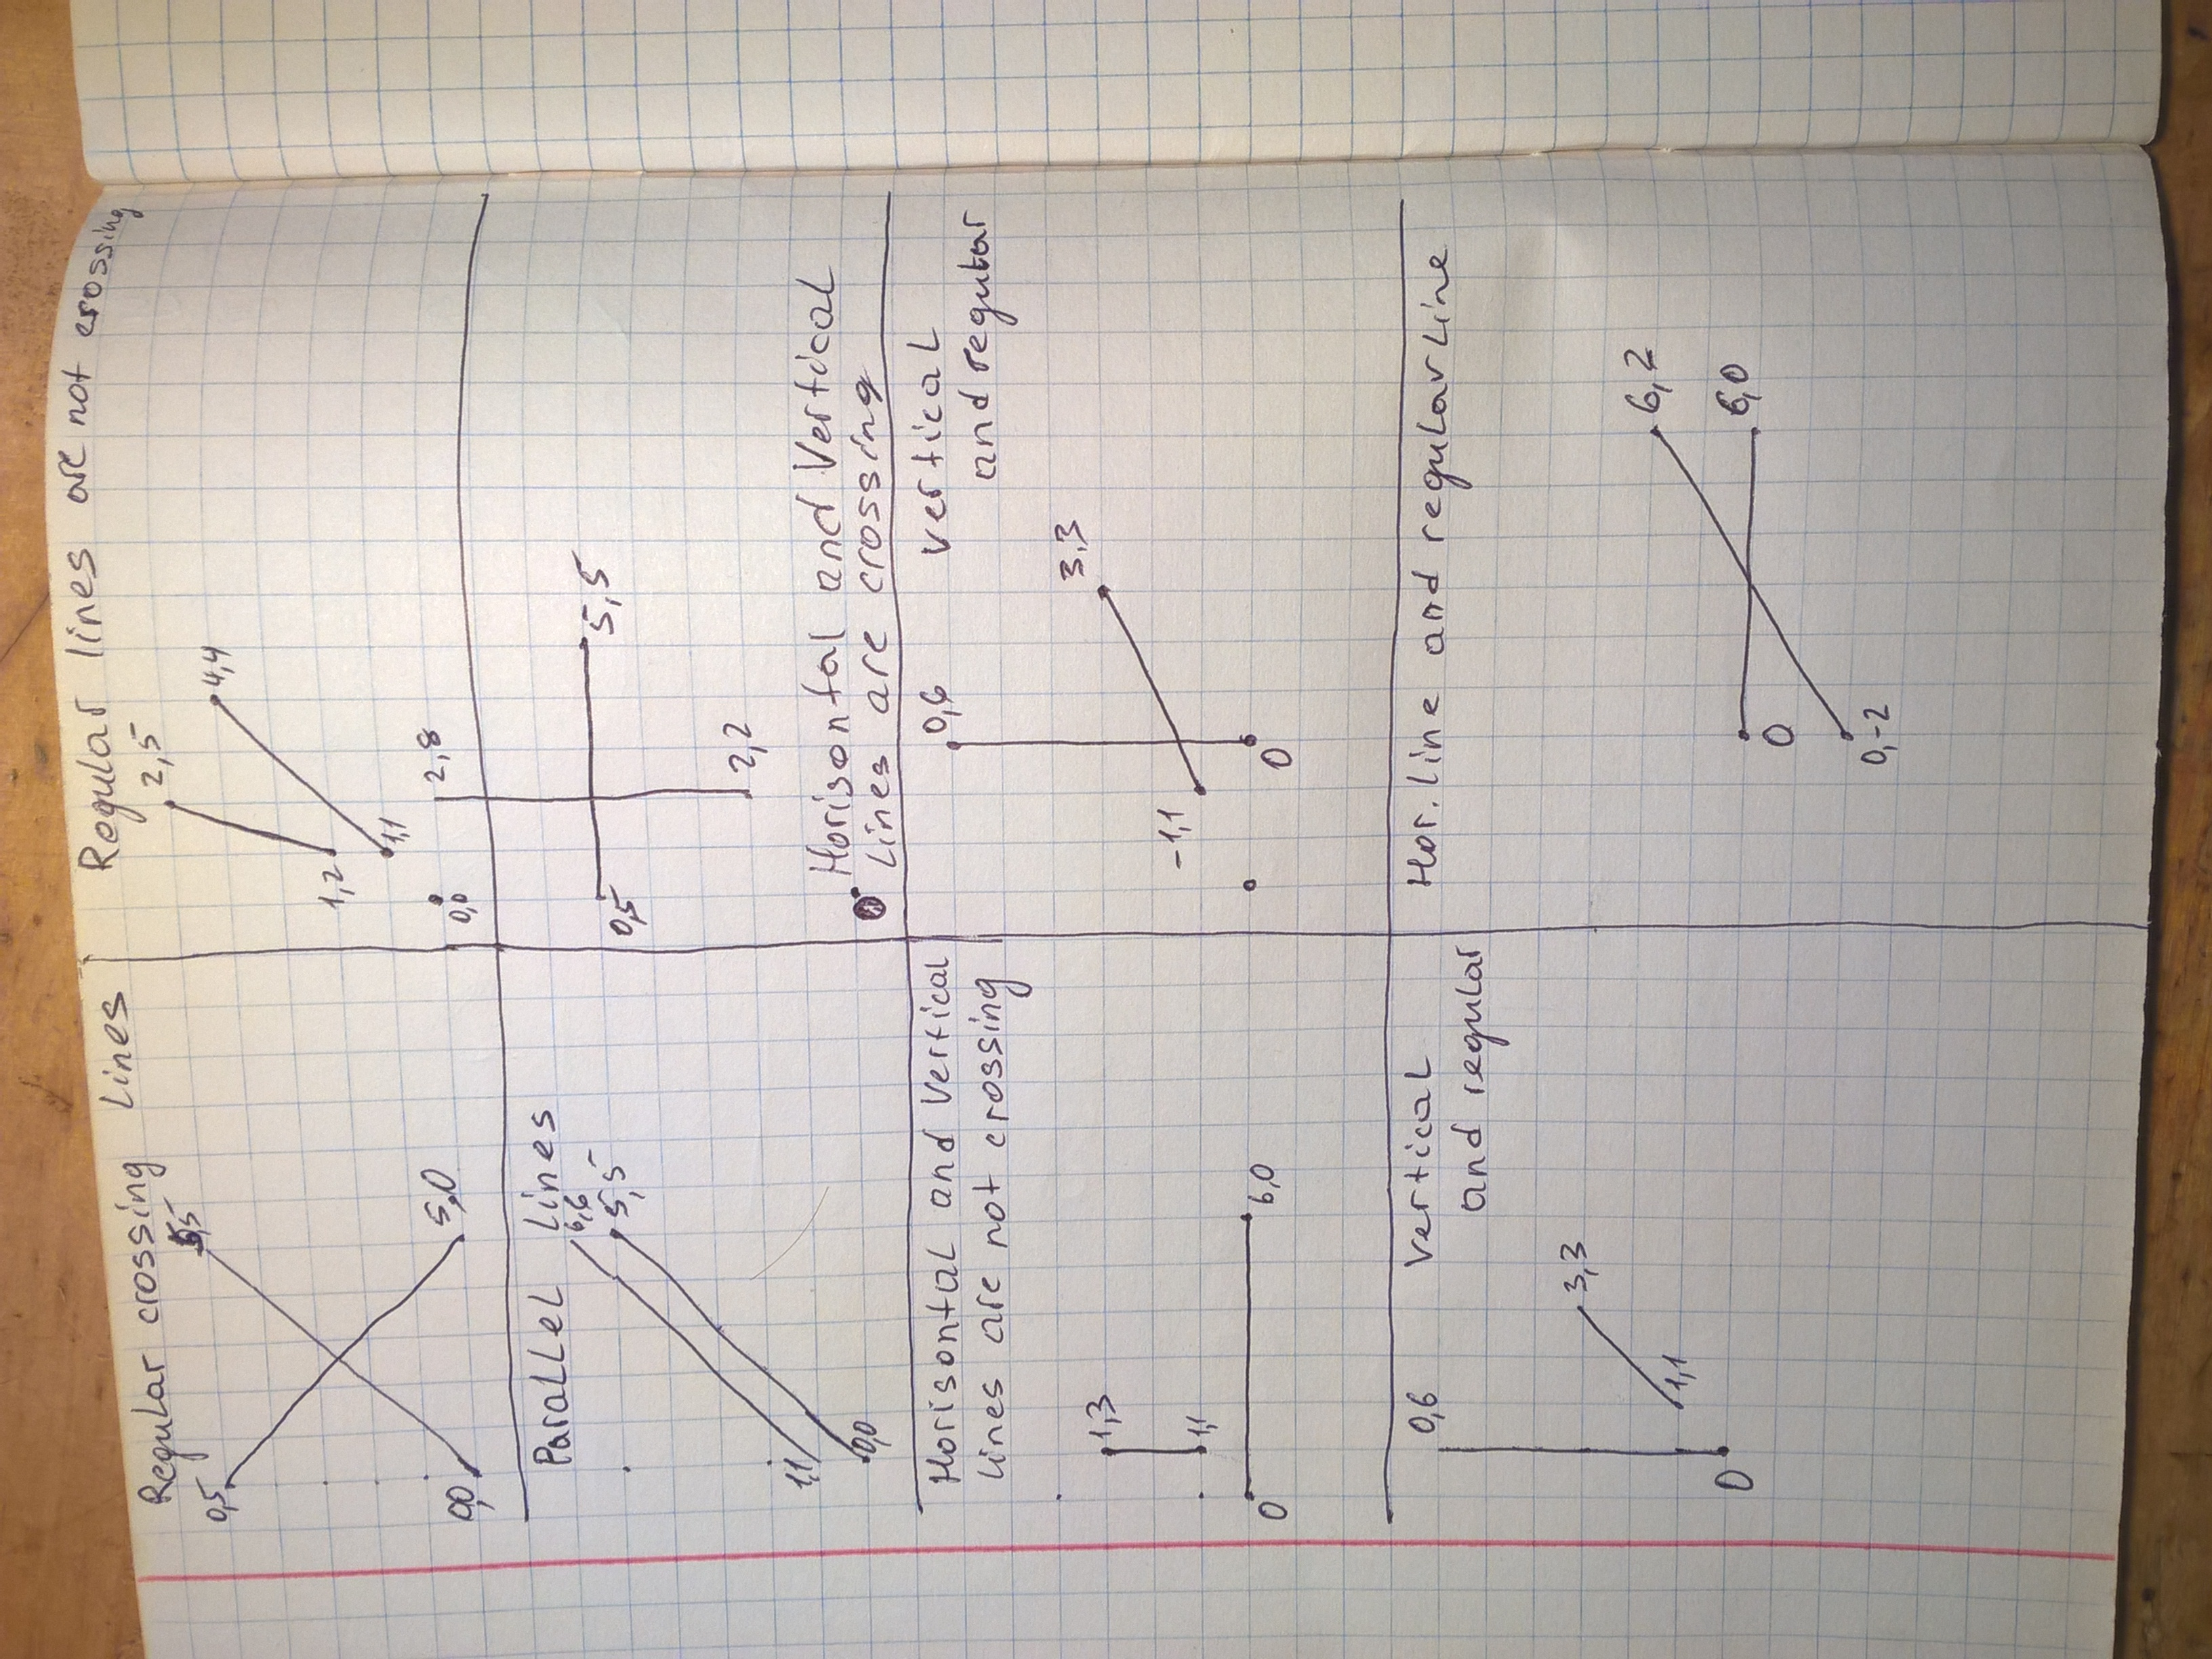 Regular crossing Lines
5,5
0,5
0,0
5,0
Regular lines are not crossing
2,5
4,4
1,2
1,1
0,0
Parallel lines
6,6
5,5
1,1
0,0
2,8
0,5
5,5
2,2
Horisontal and Vertical
lines are crossing
Horisontal and Vertical
lines are not crossing
1,3
1,1
0
6,0
0,6
Vertical
and regular
3,3
-1,1
0
0,6
Vertical
and regular
3,3
1,1
0
Hor. line and regular line
6,2
6,0
0
0,-2